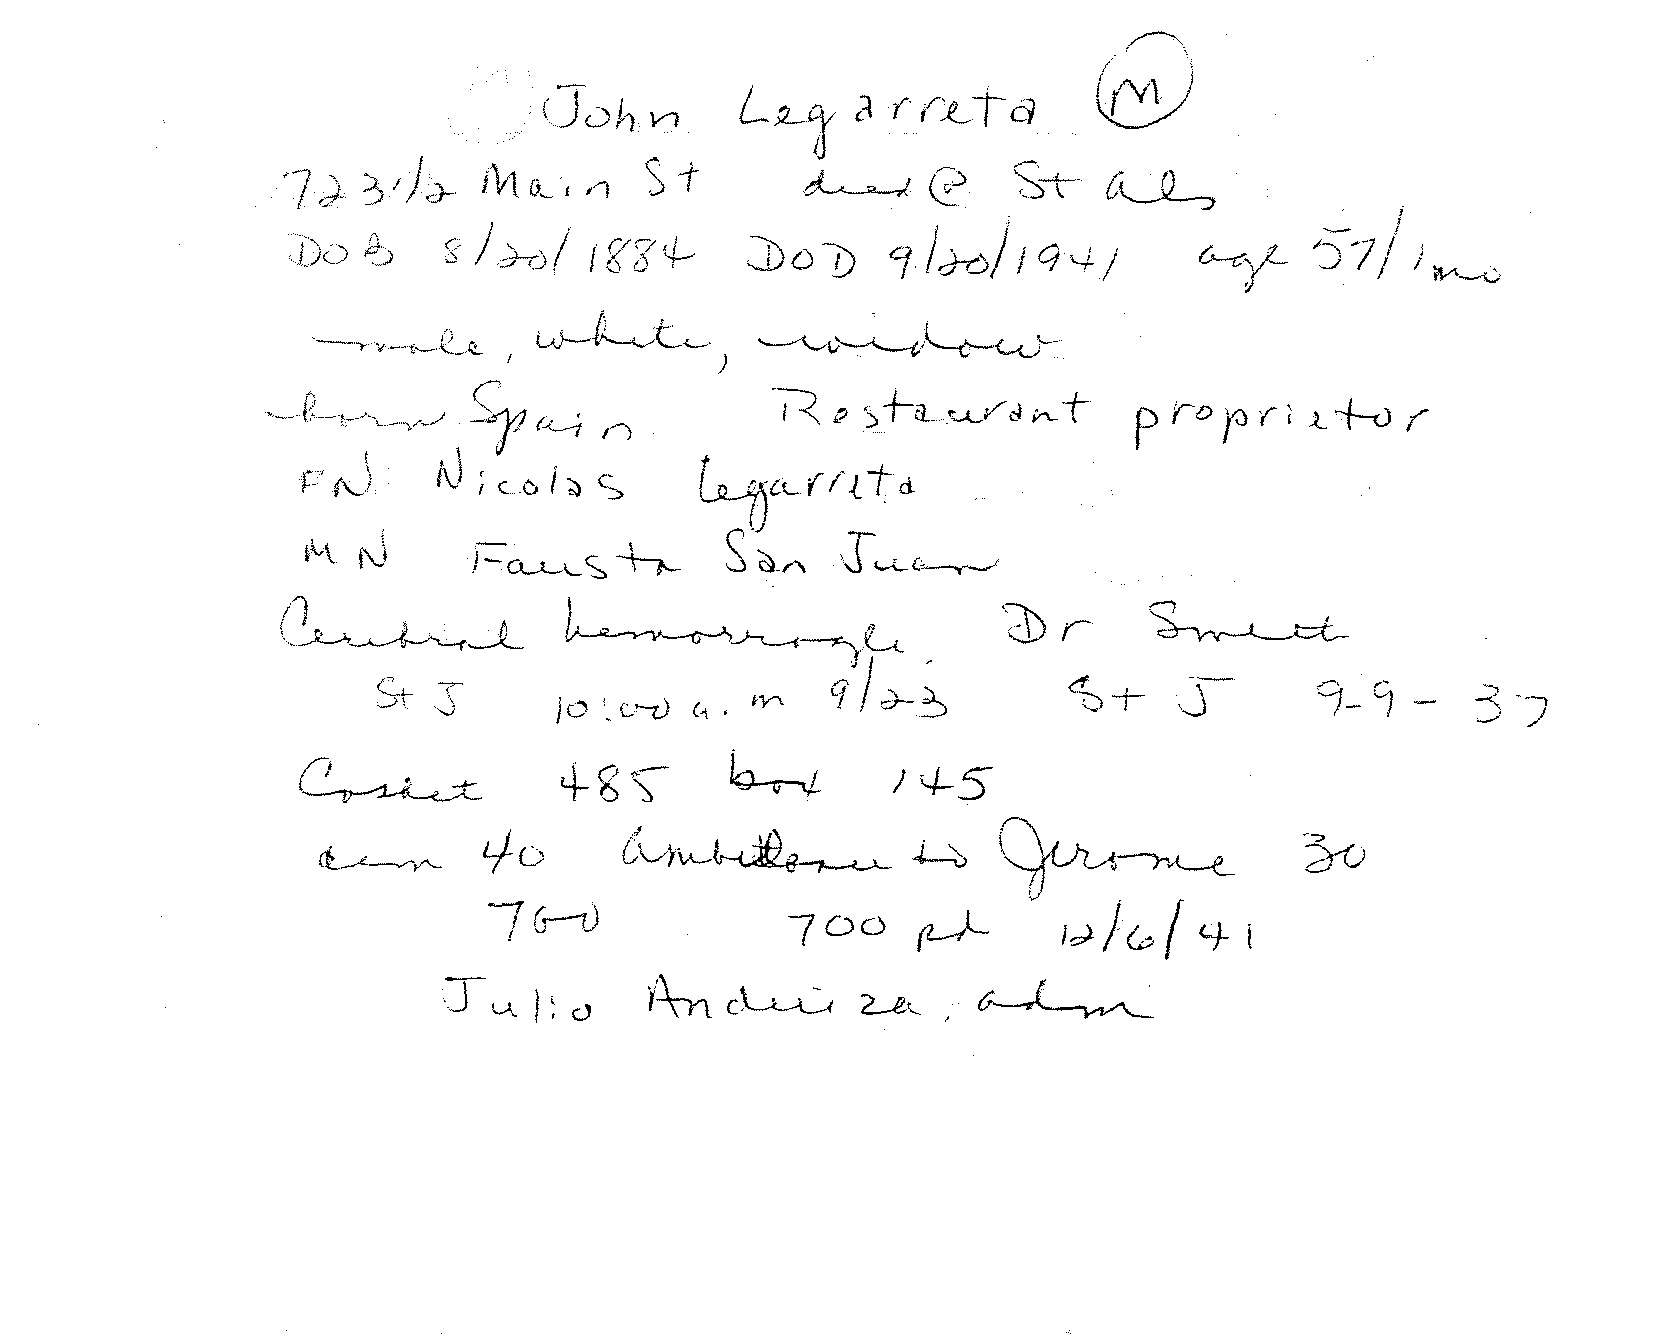 John Legarreta M
723 1/2 Main St died @ St Als
DOB 8/20/1884 DOD 9/20/1941 age 57/1mo
male, white, widow
born Spain Restaurant proprietor
FN Nicolas Legarreta
MN Fausta San Juan
Cerebral hemorragle Dr
St J 10:00 a.m 9/23 St J 9-9-37
Casket 485 box 145
cem 40 Ambulance to Jerome 30
700 700 pd 12/6/41
Julio adm